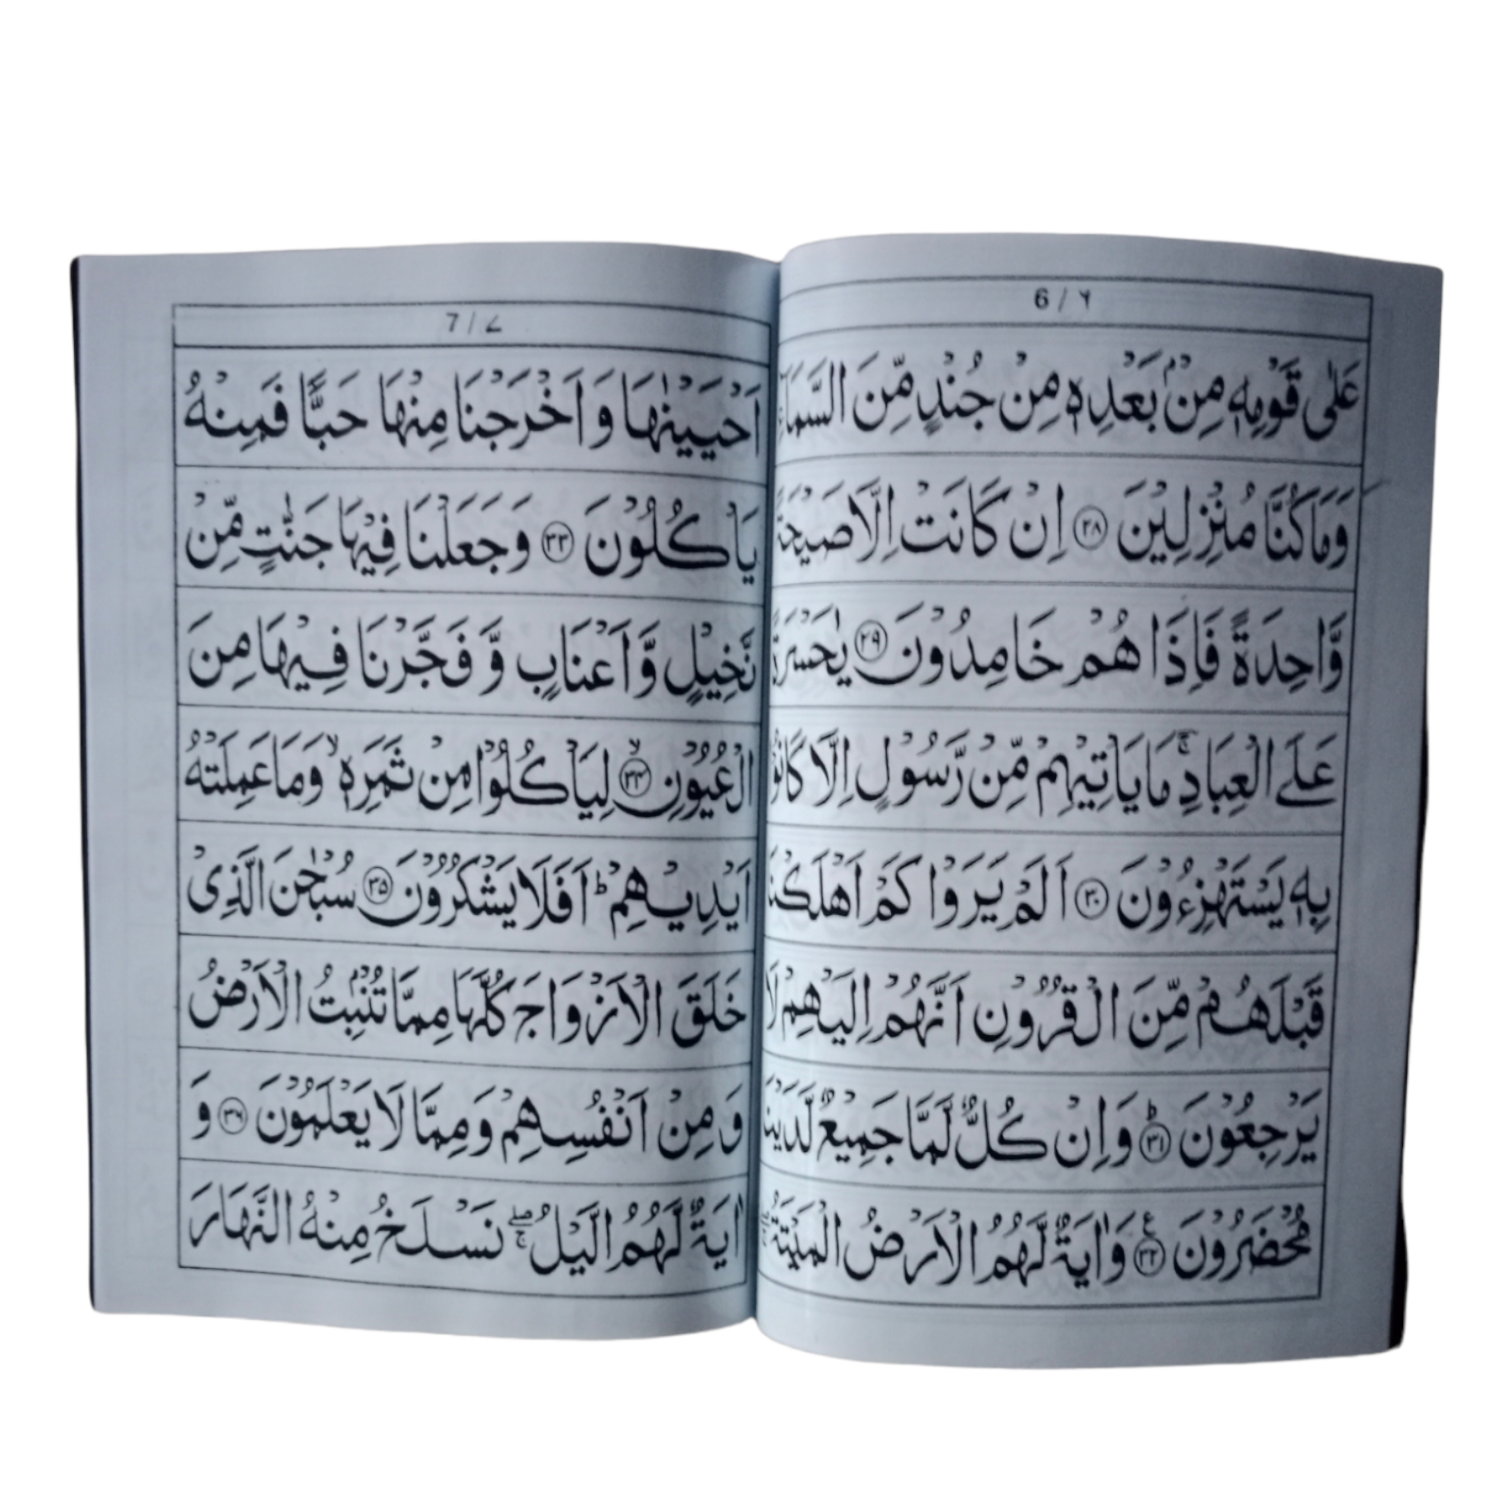 6 / ٦
عَلٰى قَوْمِهٖ مِنْۢ بَعْدِهٖ مِنْ جُنْدٍ مِّنَ السَّمَآءِ
وَمَا كُنَّا مُنْزِلِيْنَ ﴿۲۸﴾ اِنْ كَانَتْ اِلَّا صَيْحَةً
وَّاحِدَةً فَاِذَا هُمْ خَامِدُوْنَ ﴿۲۹﴾ يٰحَسْرَةً
عَلَى الْعِبَادِ ۚ مَا يَاْتِيْهِمْ مِّنْ رَّسُوْلٍ اِلَّا كَانُوْا
بِهٖ يَسْتَهْزِءُوْنَ ﴿۳۰﴾ اَلَمْ يَرَوْا كَمْ اَهْلَكْنَا
قَبْلَهُمْ مِّنَ الْقُرُوْنِ اَنَّهُمْ اِلَيْهِمْ لَا
يَرْجِعُوْنَ ؕ﴿۳۱﴾ وَاِنْ كُلٌّ لَّمَّا جَمِيْعٌ لَّدَيْنَا
مُحْضَرُوْنَ ﴿۳۲﴾ع وَاٰيَةٌ لَّهُمُ الْاَرْضُ الْمَيْتَةُ
7 / ۷
اَحْيَيْنٰهَا وَاَخْرَجْنَا مِنْهَا حَبًّا فَمِنْهُ
يَاْكُلُوْنَ ﴿۳۳﴾ وَجَعَلْنَا فِيْهَا جَنّٰتٍ مِّنْ
نَّخِيْلٍ وَّاَعْنَابٍ وَّفَجَّرْنَا فِيْهَا مِنَ
الْعُيُوْنِ ۙ﴿۳۴﴾ لِيَاْكُلُوْا مِنْ ثَمَرِهٖ ۙ وَمَا عَمِلَتْهُ
اَيْدِيْهِمْ ؕ اَفَلَا يَشْكُرُوْنَ ﴿۳۵﴾ سُبْحٰنَ الَّذِىْ
خَلَقَ الْاَزْوَاجَ كُلَّهَا مِمَّا تُنْۢبِتُ الْاَرْضُ
وَمِنْ اَنْفُسِهِمْ وَمِمَّا لَا يَعْلَمُوْنَ ﴿۳۶﴾ وَ
اٰيَةٌ لَّهُمُ الَّيْلُ ۖۚ نَسْلَخُ مِنْهُ النَّهَارَ